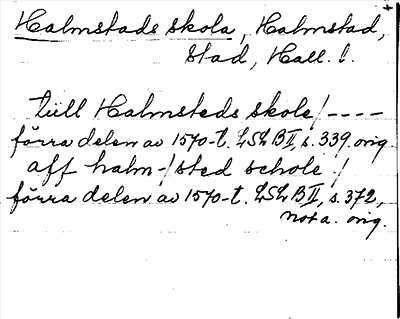 Halmstads skola, Halmstad,
Stad, Hall. l.
tüll Halmsteds skole/----
förra delen av 1570-t. LSLB II, s. 339 orig
aff halm-/sted schole /
förra delen av 1570-t. LSLB II, s. 372,
not a. orig.